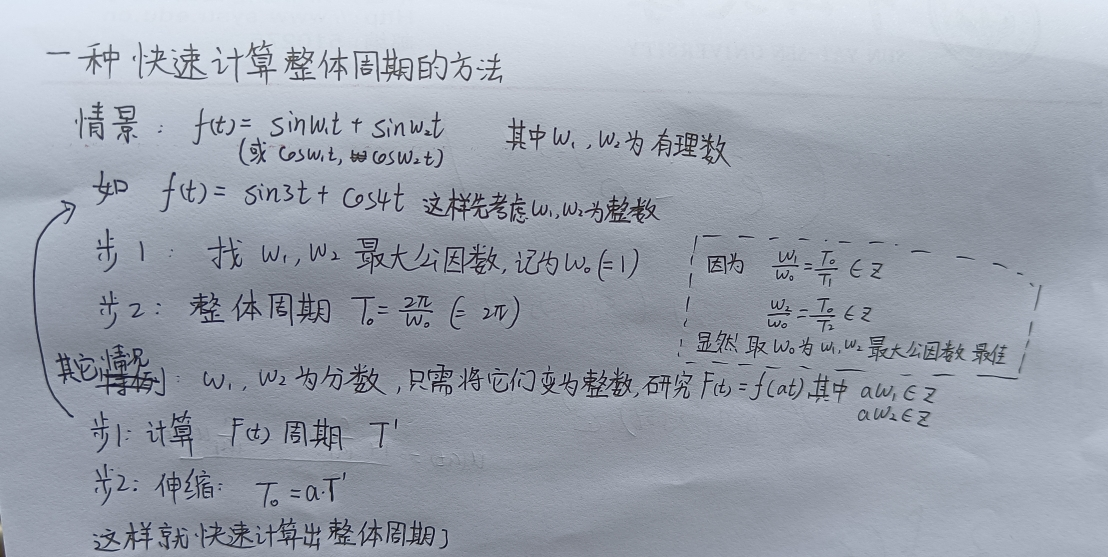 一种快速计算整体周期的方法
情景: f(t)= sinw₁t + sinw₂t 其中w₁,w₂为有理数
(或 cosw₁t, cosw₂t)
如 f(t)= sin3t + cos4t 这样先考虑w₁,w₂为整数
步1: 找 w₁,w₂ 最大公因数,记为w₀(=1)
步2: 整体周期 T₀=2π/w₀ (= 2π)
因为 w₁/w₀=T₀/T₁ ∈ Z
w₂/w₀=T₀/T₂ ∈ Z
显然取w₀为w₁,w₂最大公因数最佳
其它情况: w₁, w₂为分数,只需将它们变为整数,研究F(t)=f(at),其中 aw₁∈Z
aw₂∈Z
步1: 计算 F(t) 周期 T'
步2: 伸缩: T₀=a·T'
这样就快速计算出整体周期了